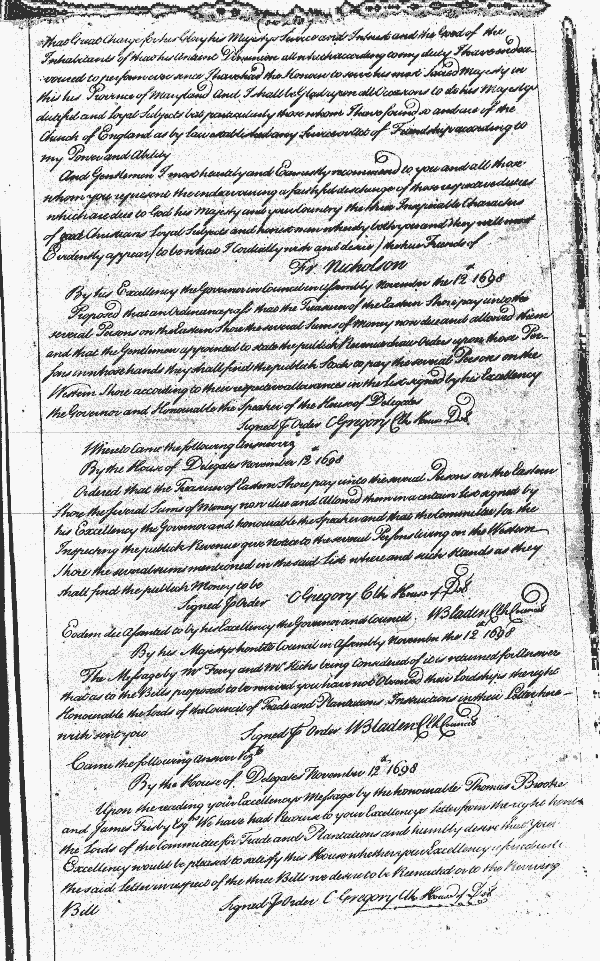 that Great Charge for his Glory his Majestys Service and Interest and the Good of the
Inhabitants of that his Ancient Dominion all which according to my duty I have endea-
voured to perform ever since I have had the Honour to serve his most Sacred Majesty in
this his Province of Maryland And I shall be Glad upon all Occasions to do his Majestys
dutiful and Loyal Subjects but particularly those whom I have found so and are of the
Church of England as by law established any Service or Act of Friendship according to
my Power and Ability
And Gentlemen I most heartily and Earnestly recommend to you and all those
whom you represent the endeavouring a faithful discharge of those respective duties
which are due to God his Majesty and your Country the three Inseparable Characters
of good Christians Loyal Subjects and honest men whereby both you and they will most
Evidently appear to be what I cordially wish and desire / the true Friends of
Fr Nicholson
By his Excellency the Governor in Councill in Assembly November the 12th 1698
Proposed that an Ordinance pass that the Treasurer of the Eastern Shore pay unto the
several Persons on the Eastern Shore the several Sums of Money now due and allowed them
and that the Gentlemen appointed to state the publick Revenue draw Orders upon those Per-
sons in whose hands they shall find the publick Stock to pay the several Persons on the
Western Shore according to their respective allowances in the List signed by his Excellency
the Governor and Honourable the Speaker of the House of Delegates
Signed p Order C Gregory Clk House Del
Whereto Came the following Answer viz
By the House of Delegates November 12th 1698
Ordered that the Treasurer of Eastern Shore pay unto the several Persons on the Eastern
Shore the several Sums of Money now due and Allowed them in a certain List signed by
his Excellency the Governor and honourable the Speaker and that the Committee for the
Inspecting the publick Revenue give notice to the several Persons living on the Western
Shore the several sums mentioned in the said List where and in such Hands as they
shall find the publick Money to be
Signed p Order C Gregory Clk House of Del
Eodem die Assented to by his Excellency the Governor and Council W Bladen Clk Council
By his Majestys honble Council in Assembly November the 12th 1698
The Message by Mr Ferry and Mr Hicks being Considered of it is returned for Answer
that as to the Bills proposed to be revived you have not Observed their Lordships the right
Honourable the Lords of the Council of Trade and Plantations Instructions in their Letter here-
with sent you Signed p Order W Bladen Clk Council
Came the following Answer viz
By the House of Delegates November 12th 1698
Upon the reading your Excellencys Message by the honourable Thomas Brooke
and James Frisby Esqrs We have had Recourse to your Excellencys Letter from the right honble
the Lords of the Committee for Trade and Plantations and humbly desire that Your
Excellency would be pleased to satisfy this House whether your Excellency
the said Letter in respect of the three Bills we desire to be Reenacted or to the Reviving
Bill Signed p Order C Gregory Clk House of Del